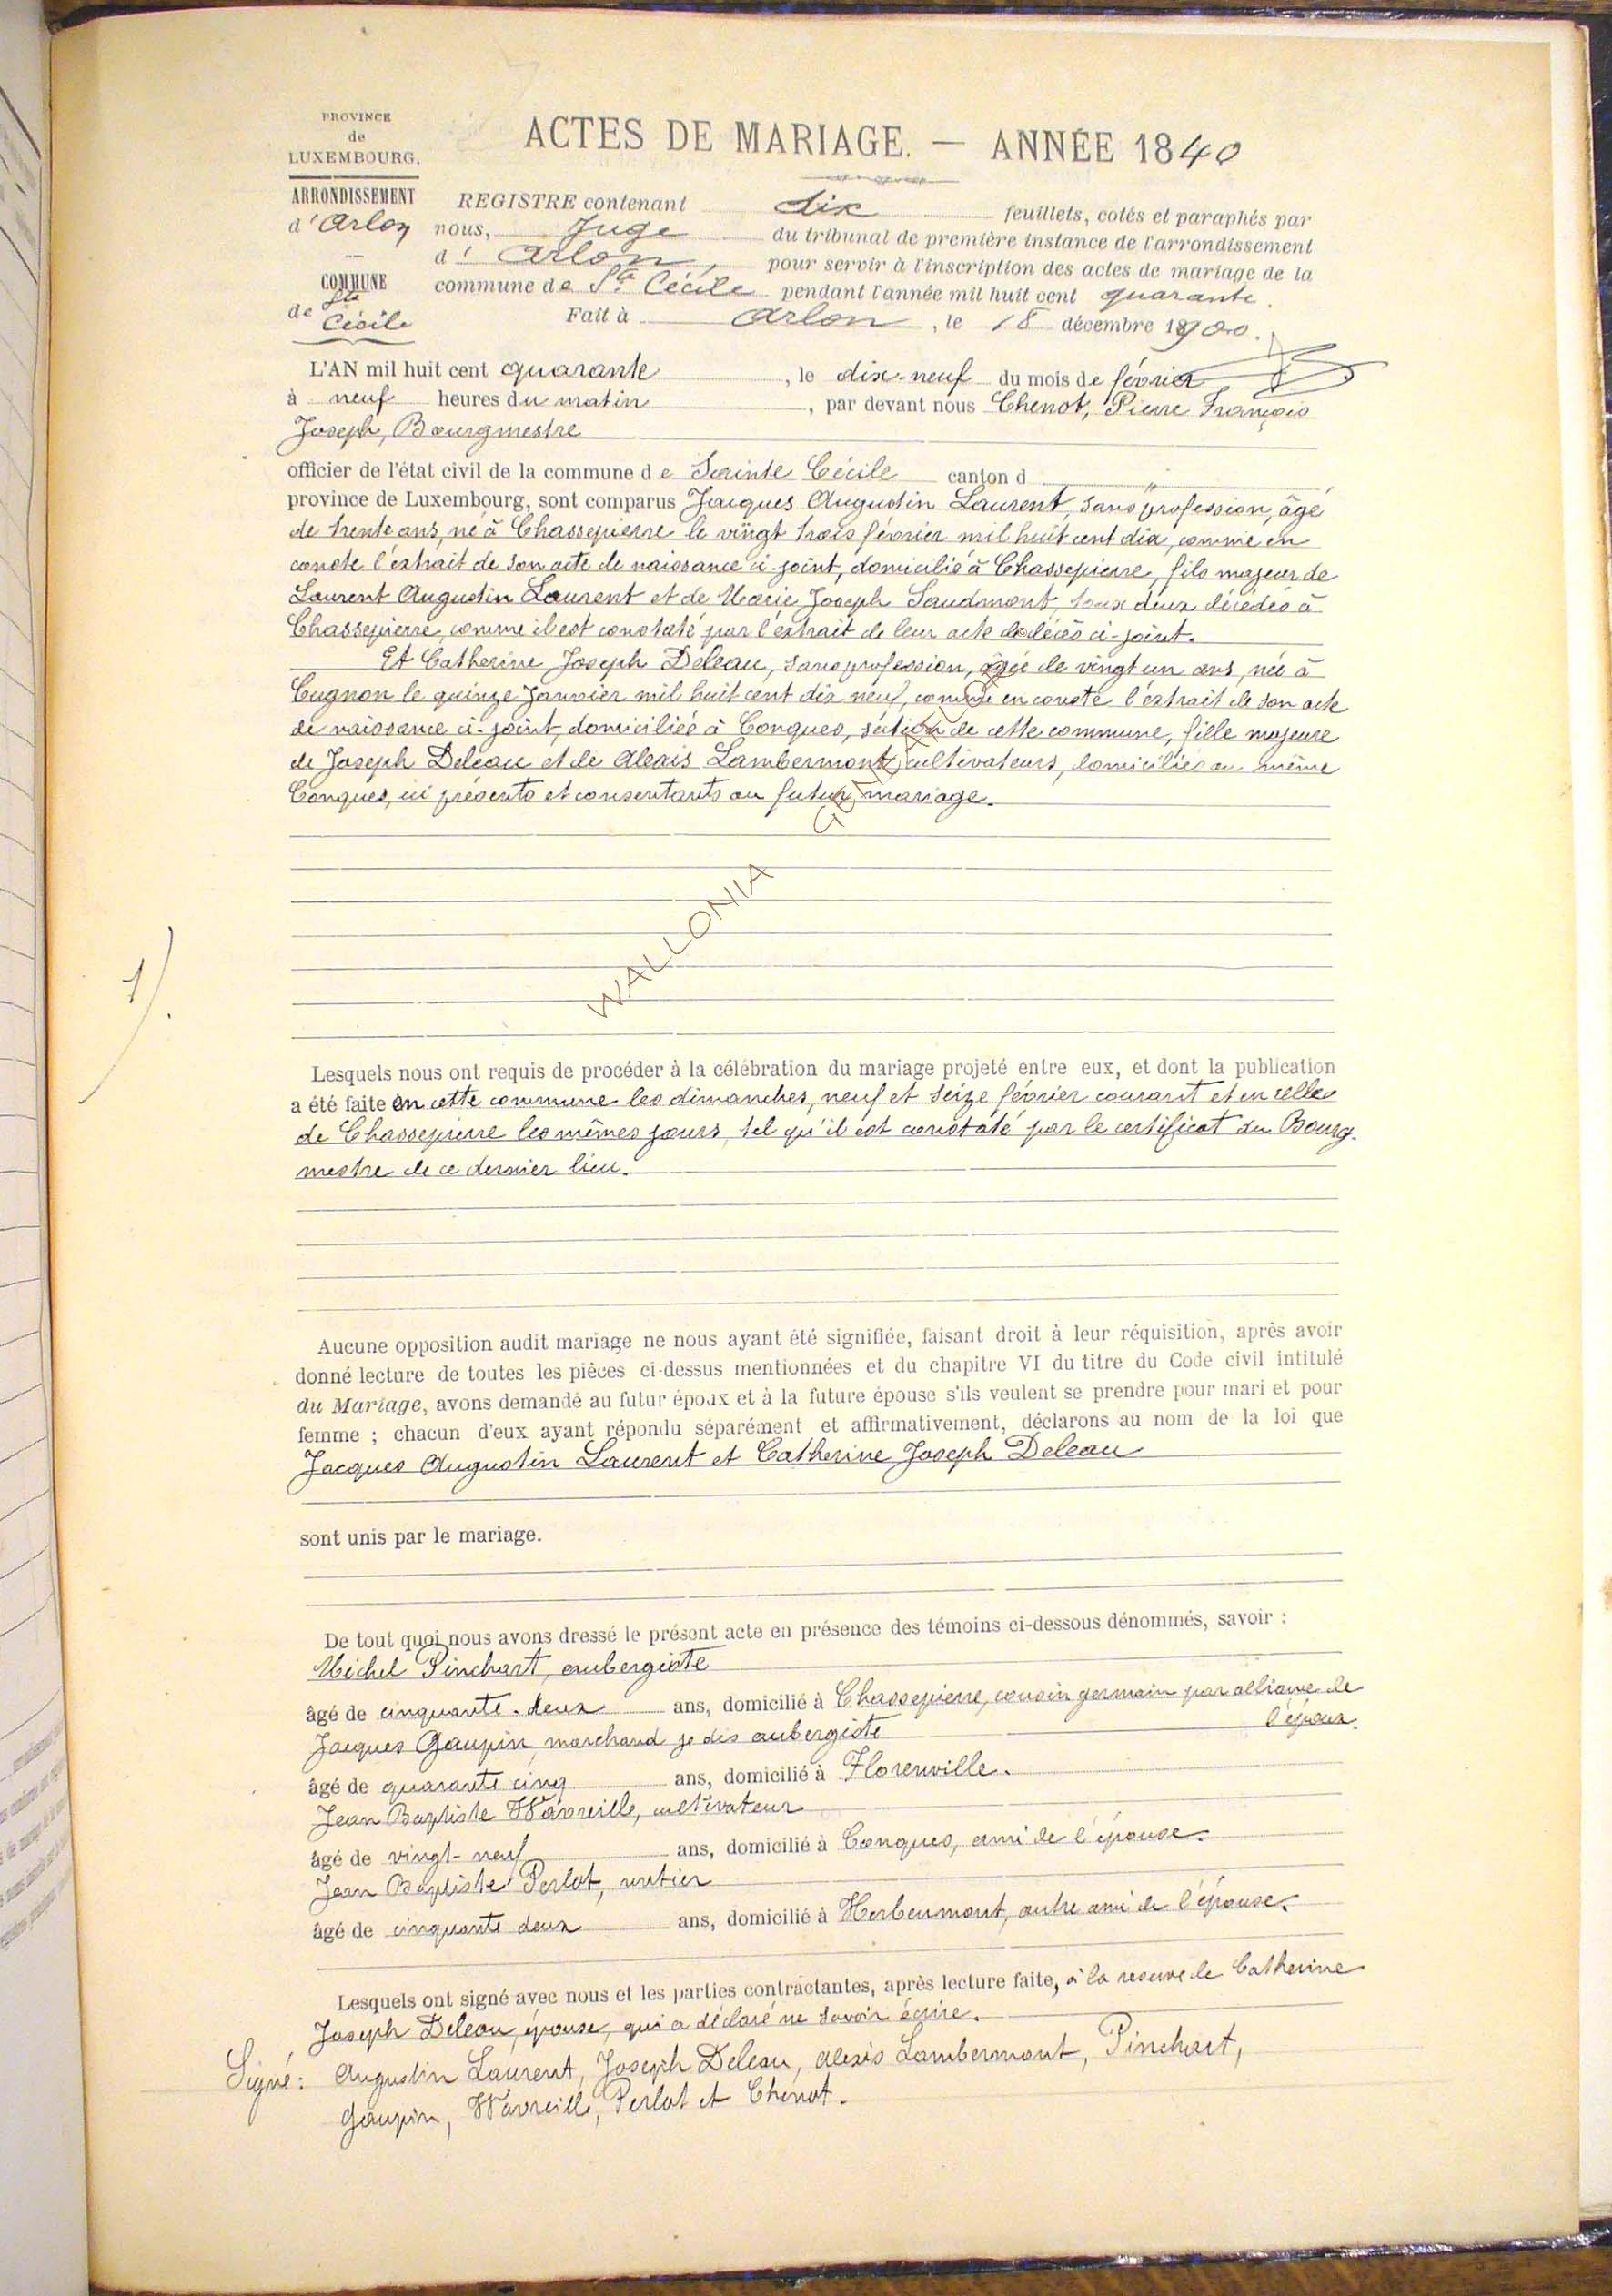 PROVINCE
de
LUXEMBOURG.
ARRONDISSEMENT
d'Arlon
COMMUNE
de Ste
Cécile
ACTES DE MARIAGE. — ANNÉE 1840
REGISTRE contenant dix feuillets, cotés et paraphés par
nous, Juge du tribunal de première instance de l'arrondissement
d'Arlon, pour servir à l'inscription des actes de mariage de la
commune de Ste Cécile pendant l'année mil huit cent quarante.
Fait à Arlon, le 18 décembre 1900.
L'AN mil huit cent quarante, le dix-neuf du mois de février
à neuf heures du matin, par devant nous Chenot, Pierre François
Joseph, Bourgmestre
officier de l'état civil de la commune de Sainte Cécile canton d "
province de Luxembourg, sont comparus Jacques Augustin Laurent, sans profession, âgé
de trente ans, né à Chassepierre le vingt trois février mil huit cent dix, comme en
conste l'extrait de son acte de naissance ci-joint, domicilié à Chassepierre, fils majeur de
Laurent Augustin Laurent et de Marie Joseph Saudmont, tous deux décédés à
Chassepierre, comme il est constaté par l'extrait de leur acte de décès ci-joint.
Et Catherine Joseph Deleau, sans profession, âgée de vingt un ans, née à
Cugnon le quinze Janvier mil huit cent dix neuf, comme en conste l'extrait de son acte
de naissance ci-joint, domiciliée à Conques, section de cette commune, fille majeure
de Joseph Deleau et de Alexis Lambermont, cultivateurs, domiciliés au même
Conques, ici présents et consentants au futur mariage.
WALLONIA
1).
Lesquels nous ont requis de procéder à la célébration du mariage projeté entre eux, et dont la publication
a été faite en cette commune les dimanches, neuf et seize février courant et en celle
de Chassepierre les mêmes jours, tel qu'il est constaté par le certificat du Bourg-
mestre de ce dernier lieu.
Aucune opposition audit mariage ne nous ayant été signifiée, faisant droit à leur réquisition, après avoir
donné lecture de toutes les pièces ci-dessus mentionnées et du chapitre VI du titre du Code civil intitulé
du Mariage, avons demandé au futur époux et à la future épouse s'ils veulent se prendre pour mari et pour
femme ; chacun d'eux ayant répondu séparément et affirmativement, déclarons au nom de la loi que
Jacques Augustin Laurent et Catherine Joseph Deleau
sont unis par le mariage.
De tout quoi nous avons dressé le présent acte en présence des témoins ci-dessous dénommés, savoir :
Michel Pinchart, aubergiste
âgé de cinquante-deux ans, domicilié à Chassepierre, cousin germain par alliance de
l'époux.
Jacques Gaupin, marchand je dis aubergiste
âgé de quarante cinq ans, domicilié à Florenville.
Jean Baptiste Wavreille, cultivateur
âgé de vingt-neuf ans, domicilié à Conques, ami de l'épouse.
Jean Baptiste Perlot, rentier
âgé de cinquante deux ans, domicilié à Herbeumont, autre ami de l'épouse.
Lesquels ont signé avec nous et les parties contractantes, après lecture faite, à la reserve de Catherine
Joseph Deleau, épouse, qui a déclaré ne savoir écrire.
Signé: Augustin Laurent, Joseph Deleau, Alexis Lambermont, Pinchart,
Gaupin, Wavreille, Perlot et Chenot.